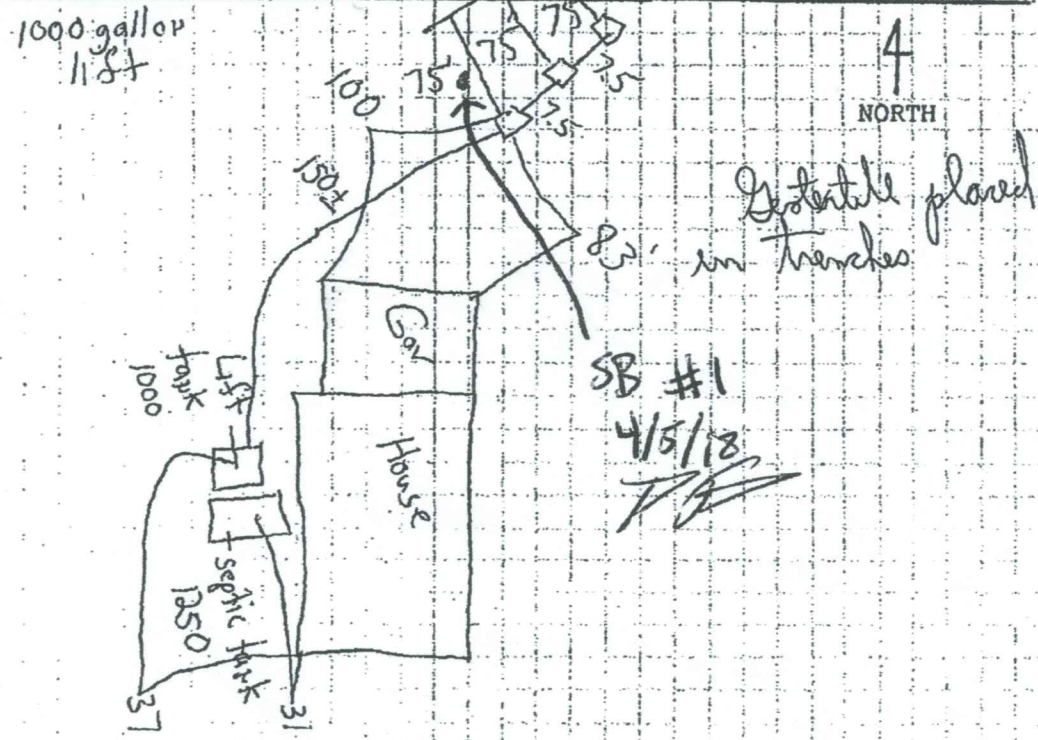 1000 gallon
lift
75
75
75
7.5
7.5
100
150±
4
NORTH
83'
placed
in trenches
Gar
SB #1
4/5/18
Lift
tank
1000
House
septic tank
1250
37
31